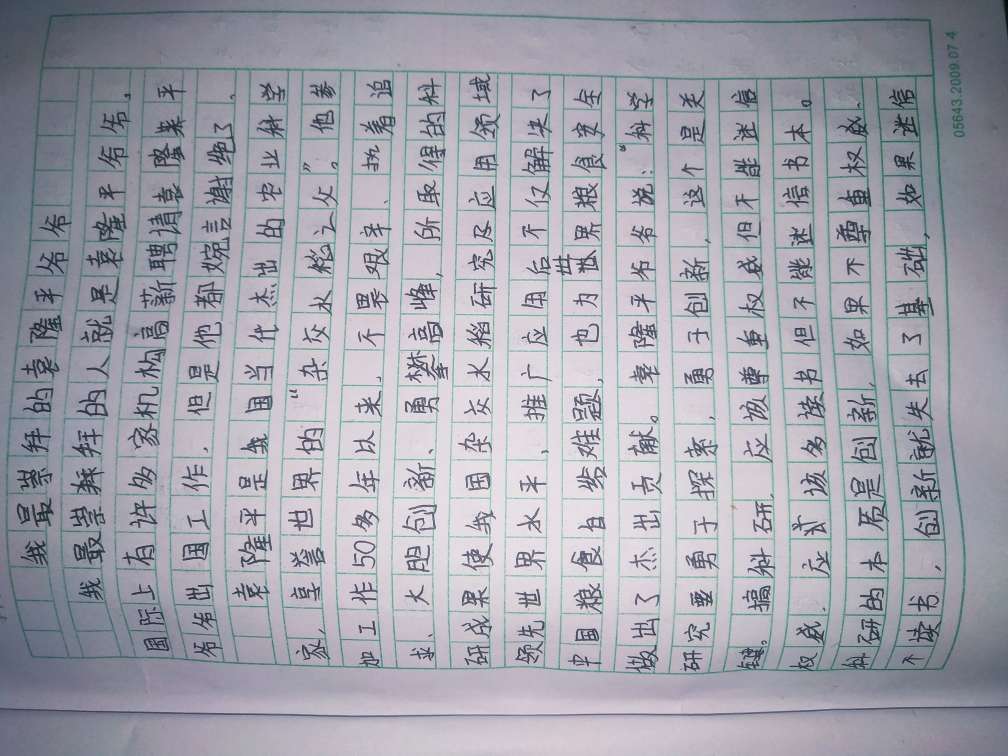 我最崇拜的袁隆平爷爷
我最崇拜的人就是袁隆平爷爷。
国际上有许多家机构高薪聘请袁隆平
爷爷出国工作,但是他都婉言谢绝了。
袁隆平是我国当代杰出的农业科学
家,享誉世界的“杂交水稻之父”。他参
加工作50多年以来,不畏艰辛、执着追
求、大胆创新、勇攀高峰,所取得的科
研成果使我国杂交水稻研究及应用领域
领先世界水平,推广应用后不仅解决了
中国粮食自给难题,也为世界粮食安全
做出了杰出贡献。袁隆平爷爷说:“科学
研究要勇于探索,勇于创新,这个是关
键。搞科研,应该尊重权威但不能迷信
权威,应该多读书但不能迷信书本。
科研的本质是创新,如果不尊重权威、
不读书,创新就失去了基础,如果迷信
05643.2009.07 4